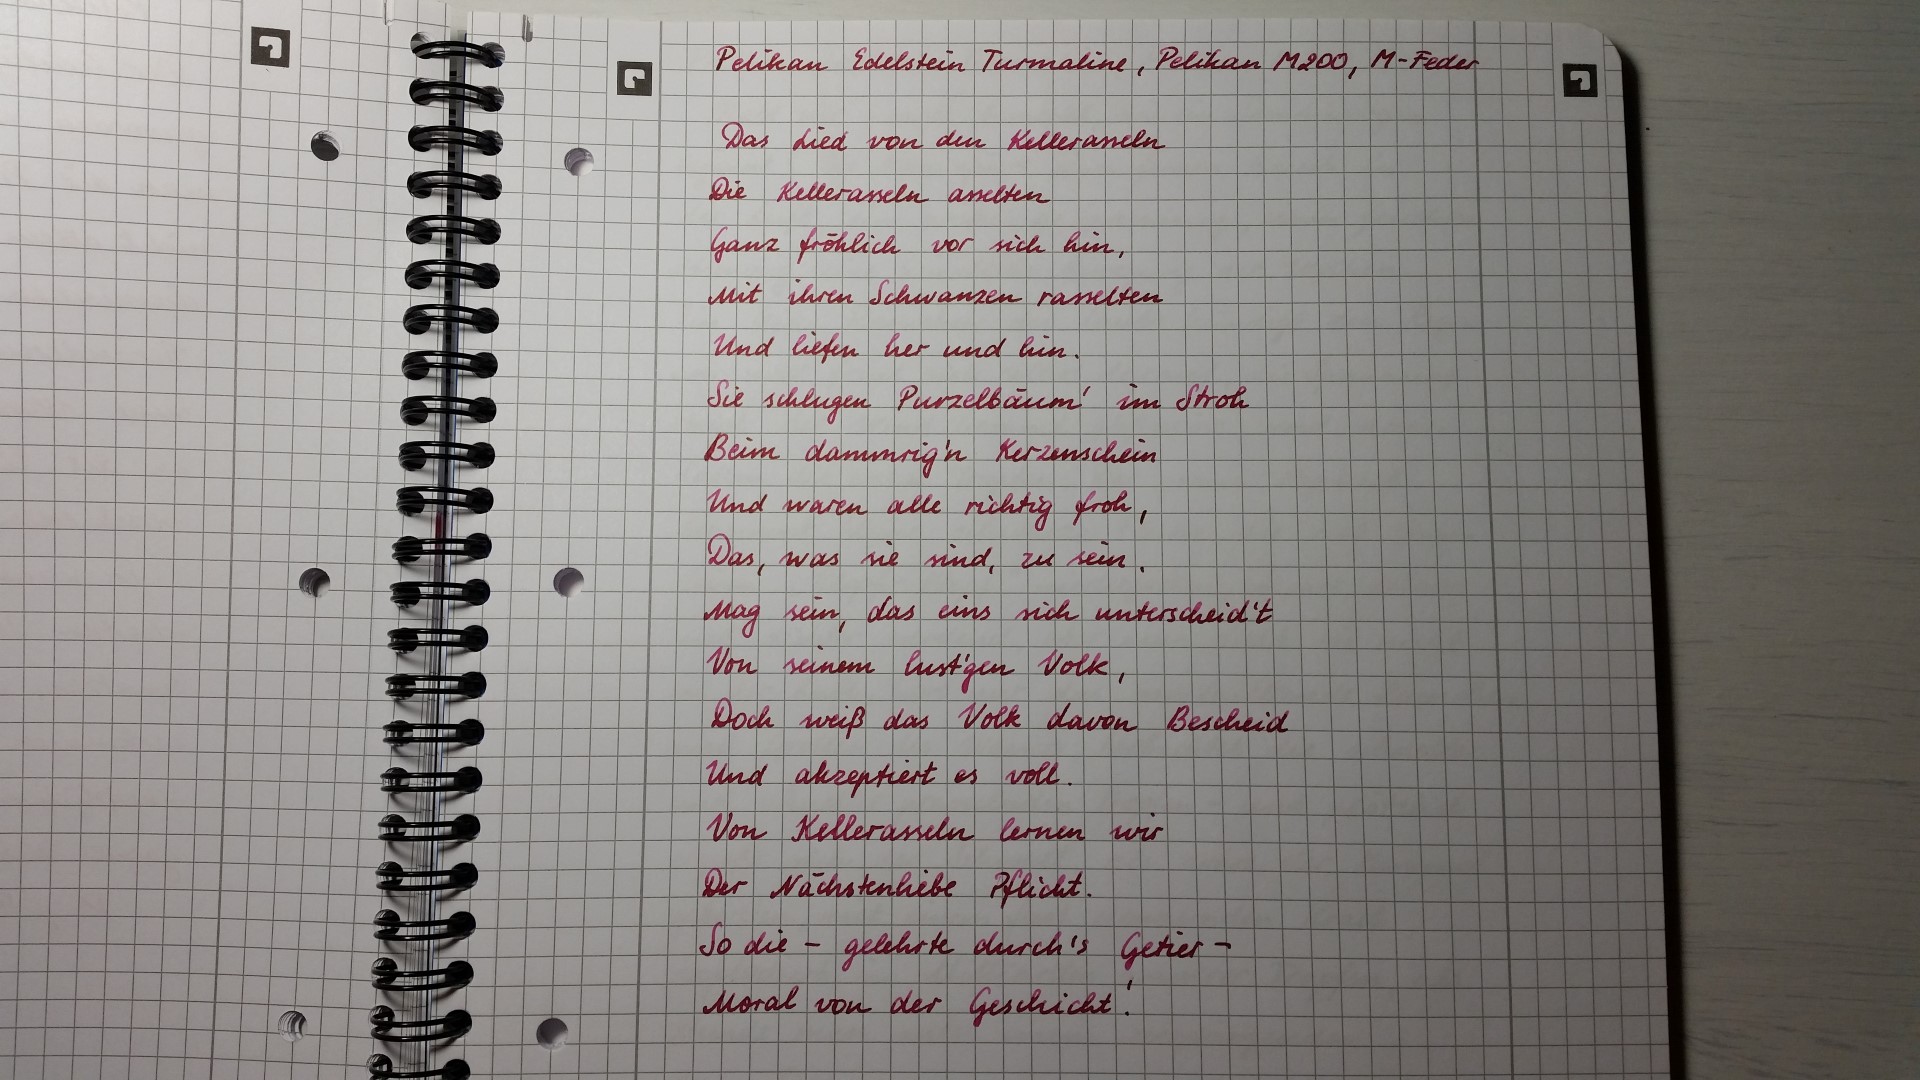 Pelikan Edelstein Turmaline, Pelikan M200, M-Feder
Das Lied von den Kellerasseln
Die Kellerasseln asselten
Ganz fröhlich vor sich hin,
Mit ihren Schwanzen rasselten
Und liefen her und hin.
Sie schlugen Purzelbäum' im Stroh
Beim dammrig'n Kerzenschein
Und waren alle richtig froh,
Das, was sie sind, zu sein.
Mag sein, das eins sich unterscheid't
Von seinem lust'gen Volk,
Doch weiß das Volk davon Bescheid
Und akzeptiert es voll.
Von Kellerasseln lernen wir
Der Nächstenliebe Pflicht.
So die – gelehrte durch's Getier –
Moral von der Geschicht'.